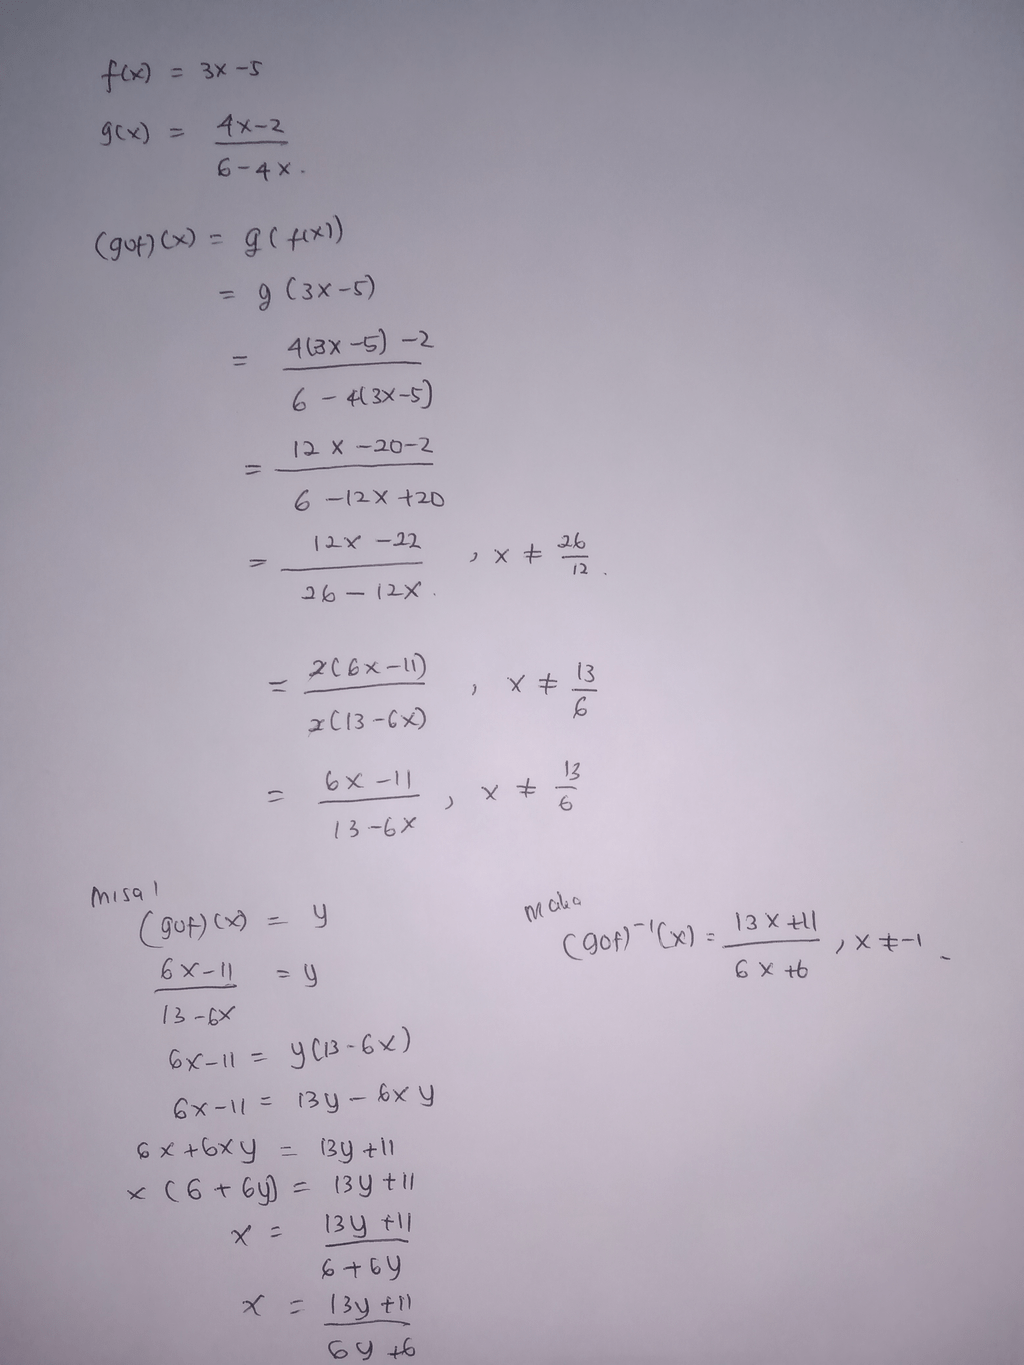 f(x) = 3x - 5
g(x) = \frac{4x-2}{6-4x}.
(gof)(x) = g(f(x))
= g(3x-5)
= \frac{4(3x-5)-2}{6-4(3x-5)}
= \frac{12x-20-2}{6-12x+20}
= \frac{12x-22}{26-12x}. , x ≠ \frac{26}{12}.
= \frac{2(6x-11)}{2(13-6x)} , x ≠ \frac{13}{6}
= \frac{6x-11}{13-6x} , x ≠ \frac{13}{6}
misal
(gof)(x) = y
\frac{6x-11}{13-6x} = y
6x-11 = y(13-6x)
6x-11 = 13y - 6xy
6x+6xy = 13y+11
x(6+6y) = 13y+11
x = \frac{13y+11}{6+6y}
x = \frac{13y+11}{6y+6}
maka
(gof)^{-1}(x) = \frac{13x+11}{6x+6} , x ≠ -1